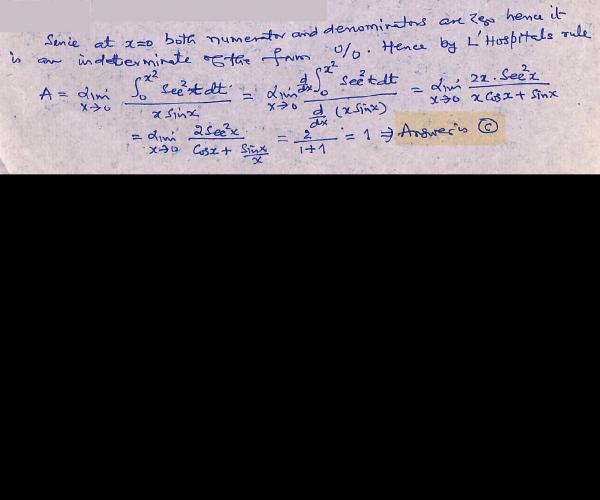 Sence at x=0 both numerator and denominators are Zero hence it
is an indeterminate of the from 0/0. Hence by L'Hospitals rule
A = lim x→0 ∫₀^x² Sec²t dt / x Sinx = lim x→0 d/dx ∫₀^x² Sec²t dt / d/dx (x Sinx) = lim x→0 2x. Sec²x / x Cosx + Sinx
= lim x→0 2 Sec²x / Cosx + Sinx/x = 2 / 1+1 = 1 ⇒ Answer is Ⓒ